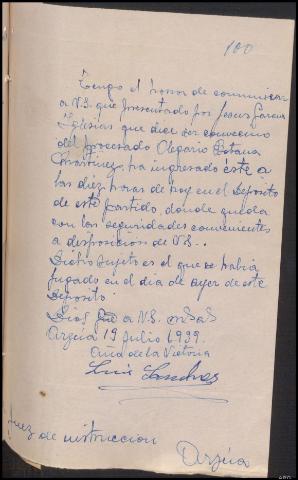 100
Tengo el honor de comunicar
a V.S. que presentado por Jesus Garcia
Iglesias que dice ser convecino
del procesado Olegario Botana
Martinez, ha ingresado éste a
las diez horas de hoy en el Deposito
de este partido, donde queda
con las seguridades convenientes
a disposicion de V.S..
Dicho sujeto es el que se habia
fugado en el dia de ayer de este
Deposito.
Dios gue a V.S. ms as
Arzúa 19 julio 1939.
Año de la Victoria
Luis
Juez de instruccion
Arzúa